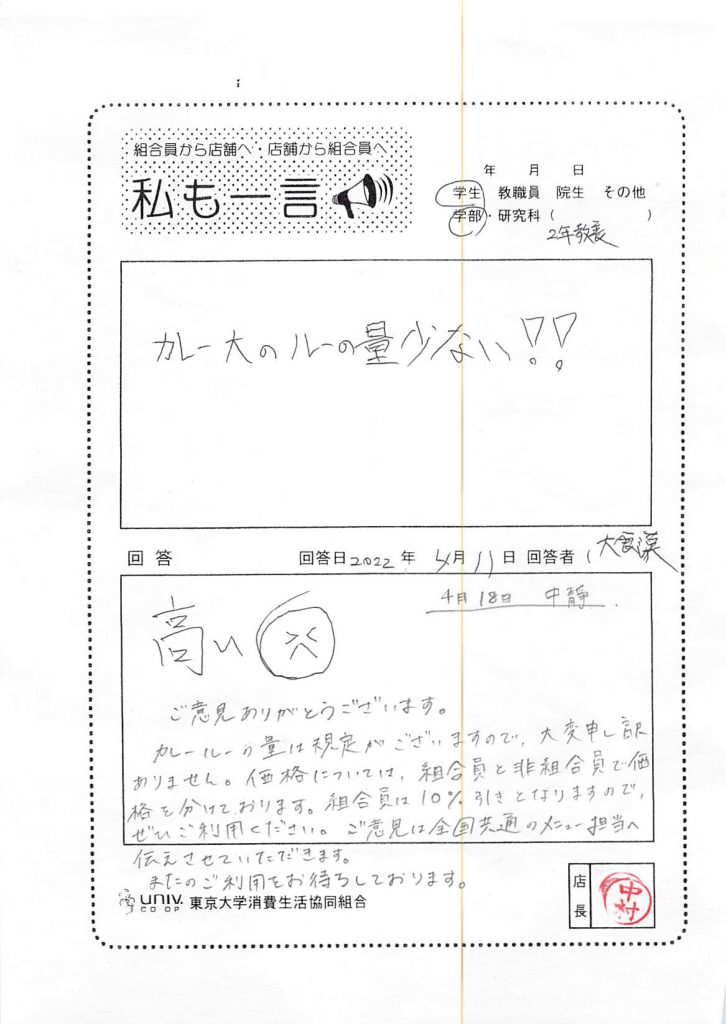 組合員から店舗へ・店舗から組合員へ
私も一言
年 月 日
学生 教職員 院生 その他
学部・研究科( )
2年教養
カレー大のルーの量少ない!!
回答 回答日2022年4月11日 回答者 大食漢
4月18日 中靜
高い
ご意見ありがとうございます。
カレールーの量は規定がございますので、大変申し訳
ありません。価格については、組合員と非組合員で価
格を分けております。組合員は10%引きとなりますので、
ぜひご利用ください。ご意見は全国共通のメニュー担当へ
伝えさせていただきます。
またのご利用をお待ちしております。
univ. CO-OP 東京大学消費生活協同組合
店長
中村